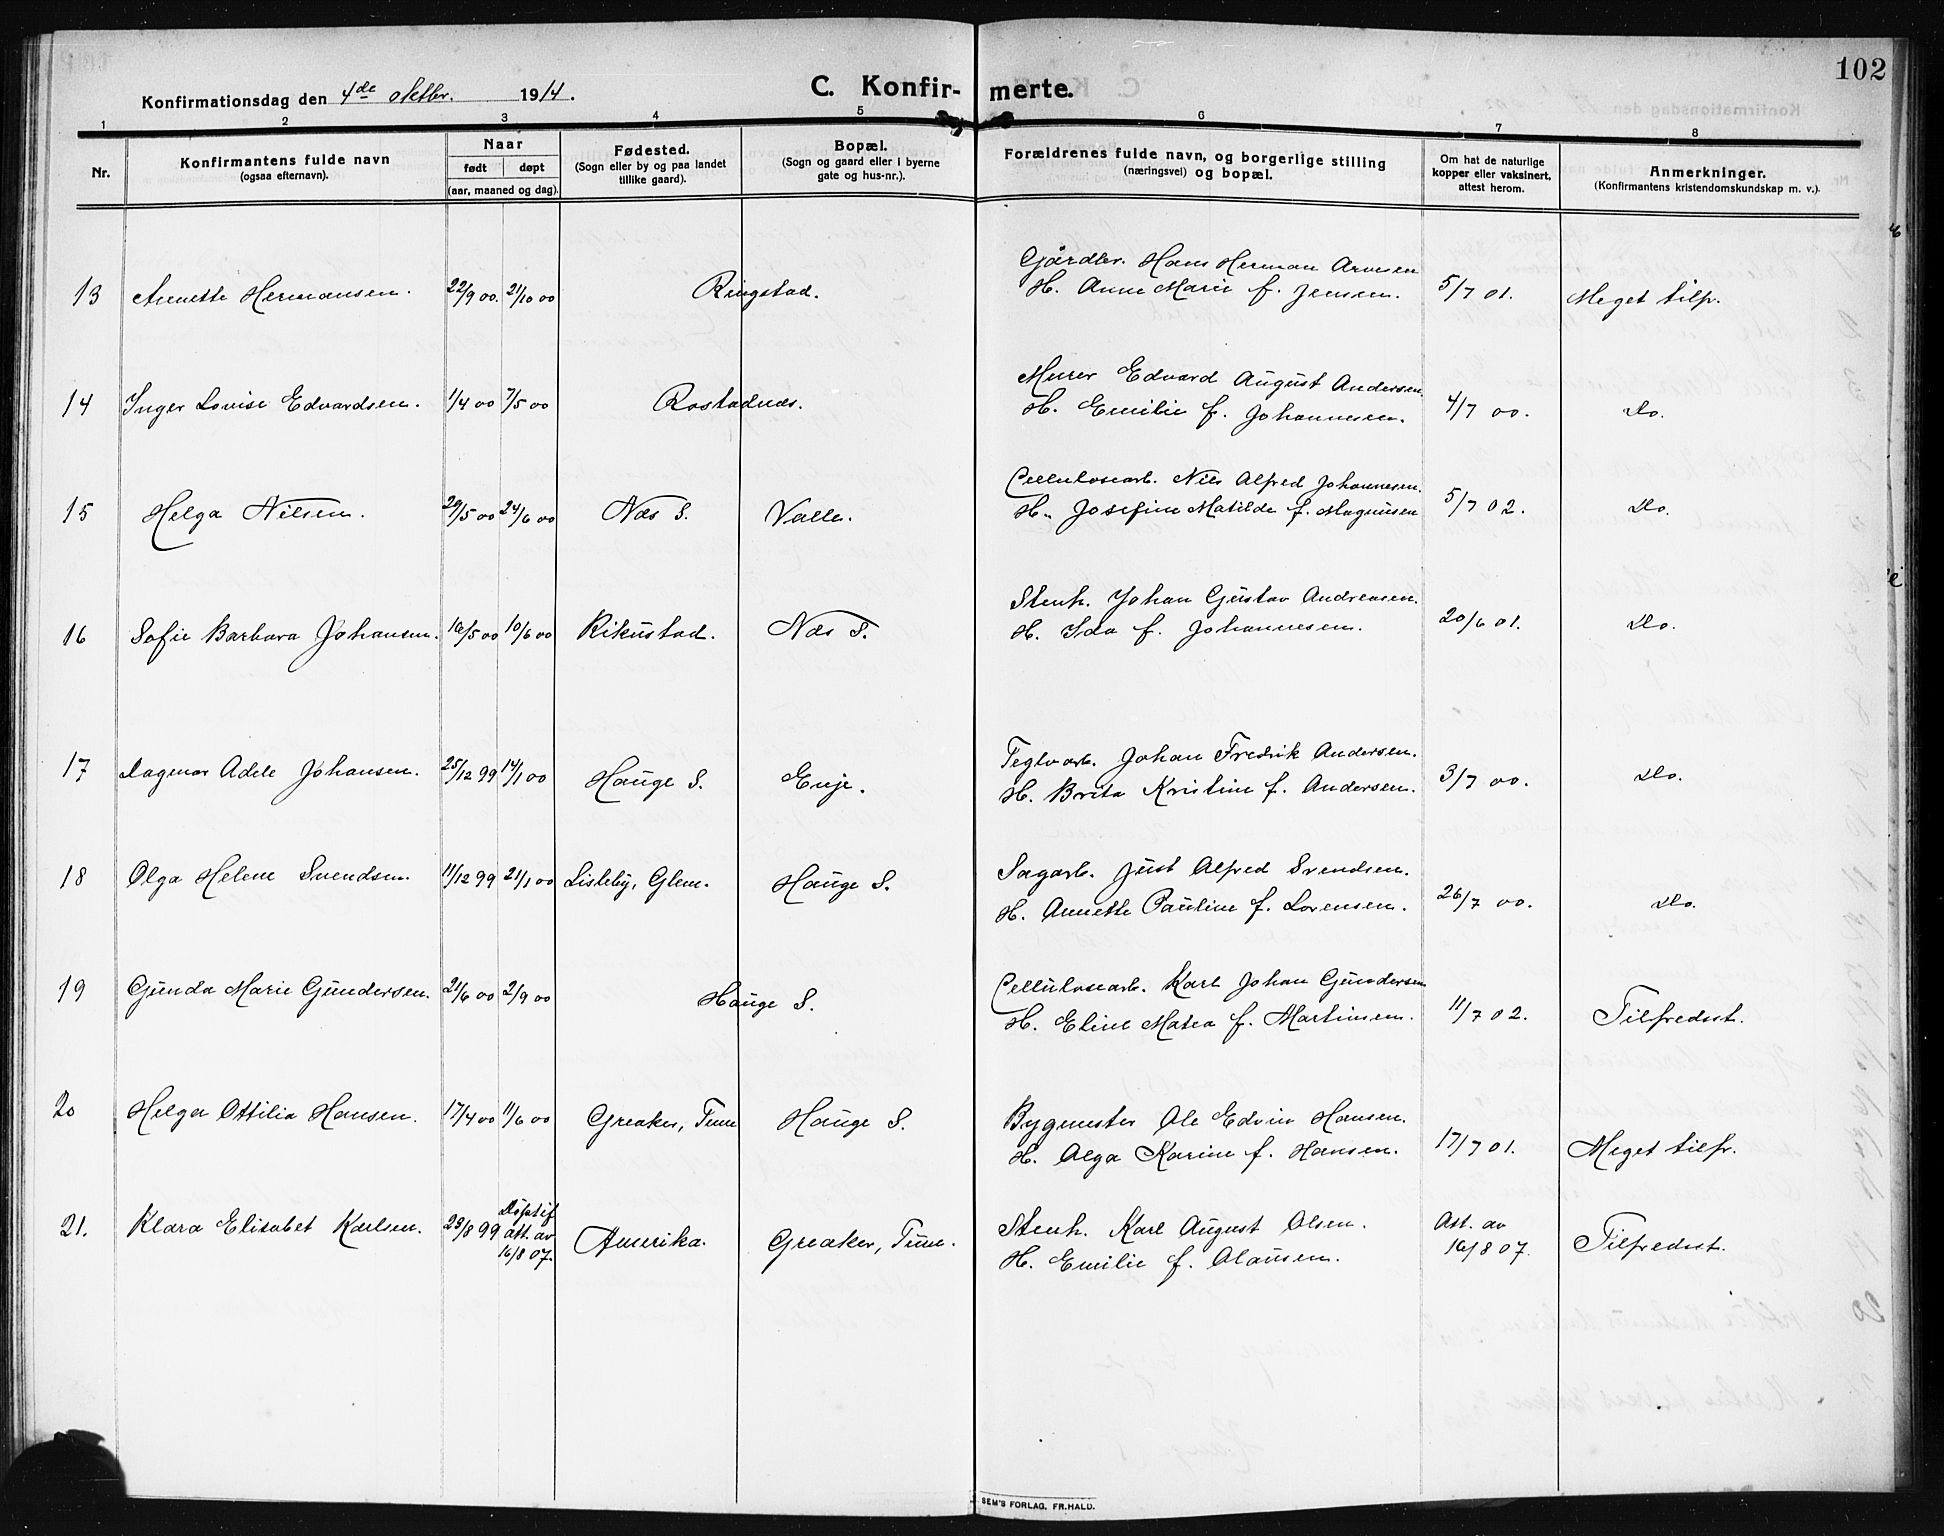 102
Konfirmationsdag den 4de oktbr. 1914.
C. Konfirmerte.
1 2 3 4 5 6 7 8
Nr.
Konfirmantens fulde navn
(ogsaa efternavn).
Naar
født døpt
(aar, maaned og dag).
Fødested.
(Sogn eller by og paa landet
tillike gaard).
Bopæl.
(Sogn og gaard eller i byerne
gate og hus-nr.).
Forældrenes fulde navn, og borgerlige stilling
(næringsvei) og bopæl.
Om hat de naturlige
kopper eller vaksinert,
attest herom.
Anmerkninger.
(Konfirmantens kristendomskundskap m. v.).
13 Annette Hermansen. 22/9 00. 21/10 00 Ringstad. Gårdbr. Hans Herman Arnesen
H. Anne Marie f. Jensen. 5/7 01. Meget tilfr.
14 Inger Lovise Edvardsen. 1/4 00 7/5 00 Rostadnæs. Murer Edvard August Andersen
H. Emilie f. Johannesen. 4/7 00. Do.
15 Helga Nilsen. 29/5 00 24/6 00 Næs S. Valle. Cellulosearb. Nils Alfred Johannesen.
H. Josefine Matilde f. Magnusen 5/7 02. Do.
16 Sofie Barbara Johansen. 16/5 00 10/6 00 Rikustad. Næs S. Stenh. Johan Gustav Andreasen.
H. Ida f. Johannesen. 20/6 01. Do.
17 Dagmar Adele Johansen. 25/12 99 14/1 00 Hauge S. Enje. Teglvarb. Johan Fredrik Andersen.
H. Brita Kristine f. Andersen. 3/7 00. Do.
18 Olga Helene Svendsen. 11/12 99 21/1 00 Lisleby, Glem. Hauge S. Sagarb. Just Alfred Svendsen.
H. Annette Pauline f. Lorensen. 26/7 00. Do.
19 Gunda Marie Gundersen. 21/6 00 2/9 00 Hauge S. Cellulosearb. Karl Johan Gundersen
H. Eline Matea f. Martinsen. 11/7 02. Tilfredsst.
20 Helga Ottilia Hansen. 17/4 00 11/6 00 Greaker, Tune Hauge S. Bygmester Ole Edvin Hansen.
H. Olga Karine f. Hansen. 17/7 01. Meget tilfr.
21. Klara Elisabet Karlsen. 28/8 99 Døpt if
att. av
16/8 07. Amerika. Greaker, Tune. Stenh. Karl August Olsen.
H. Emilie f. Olausen. Att. av
16/8 07. Tilfredsst.
SEM'S FORLAG, FR.HALD.